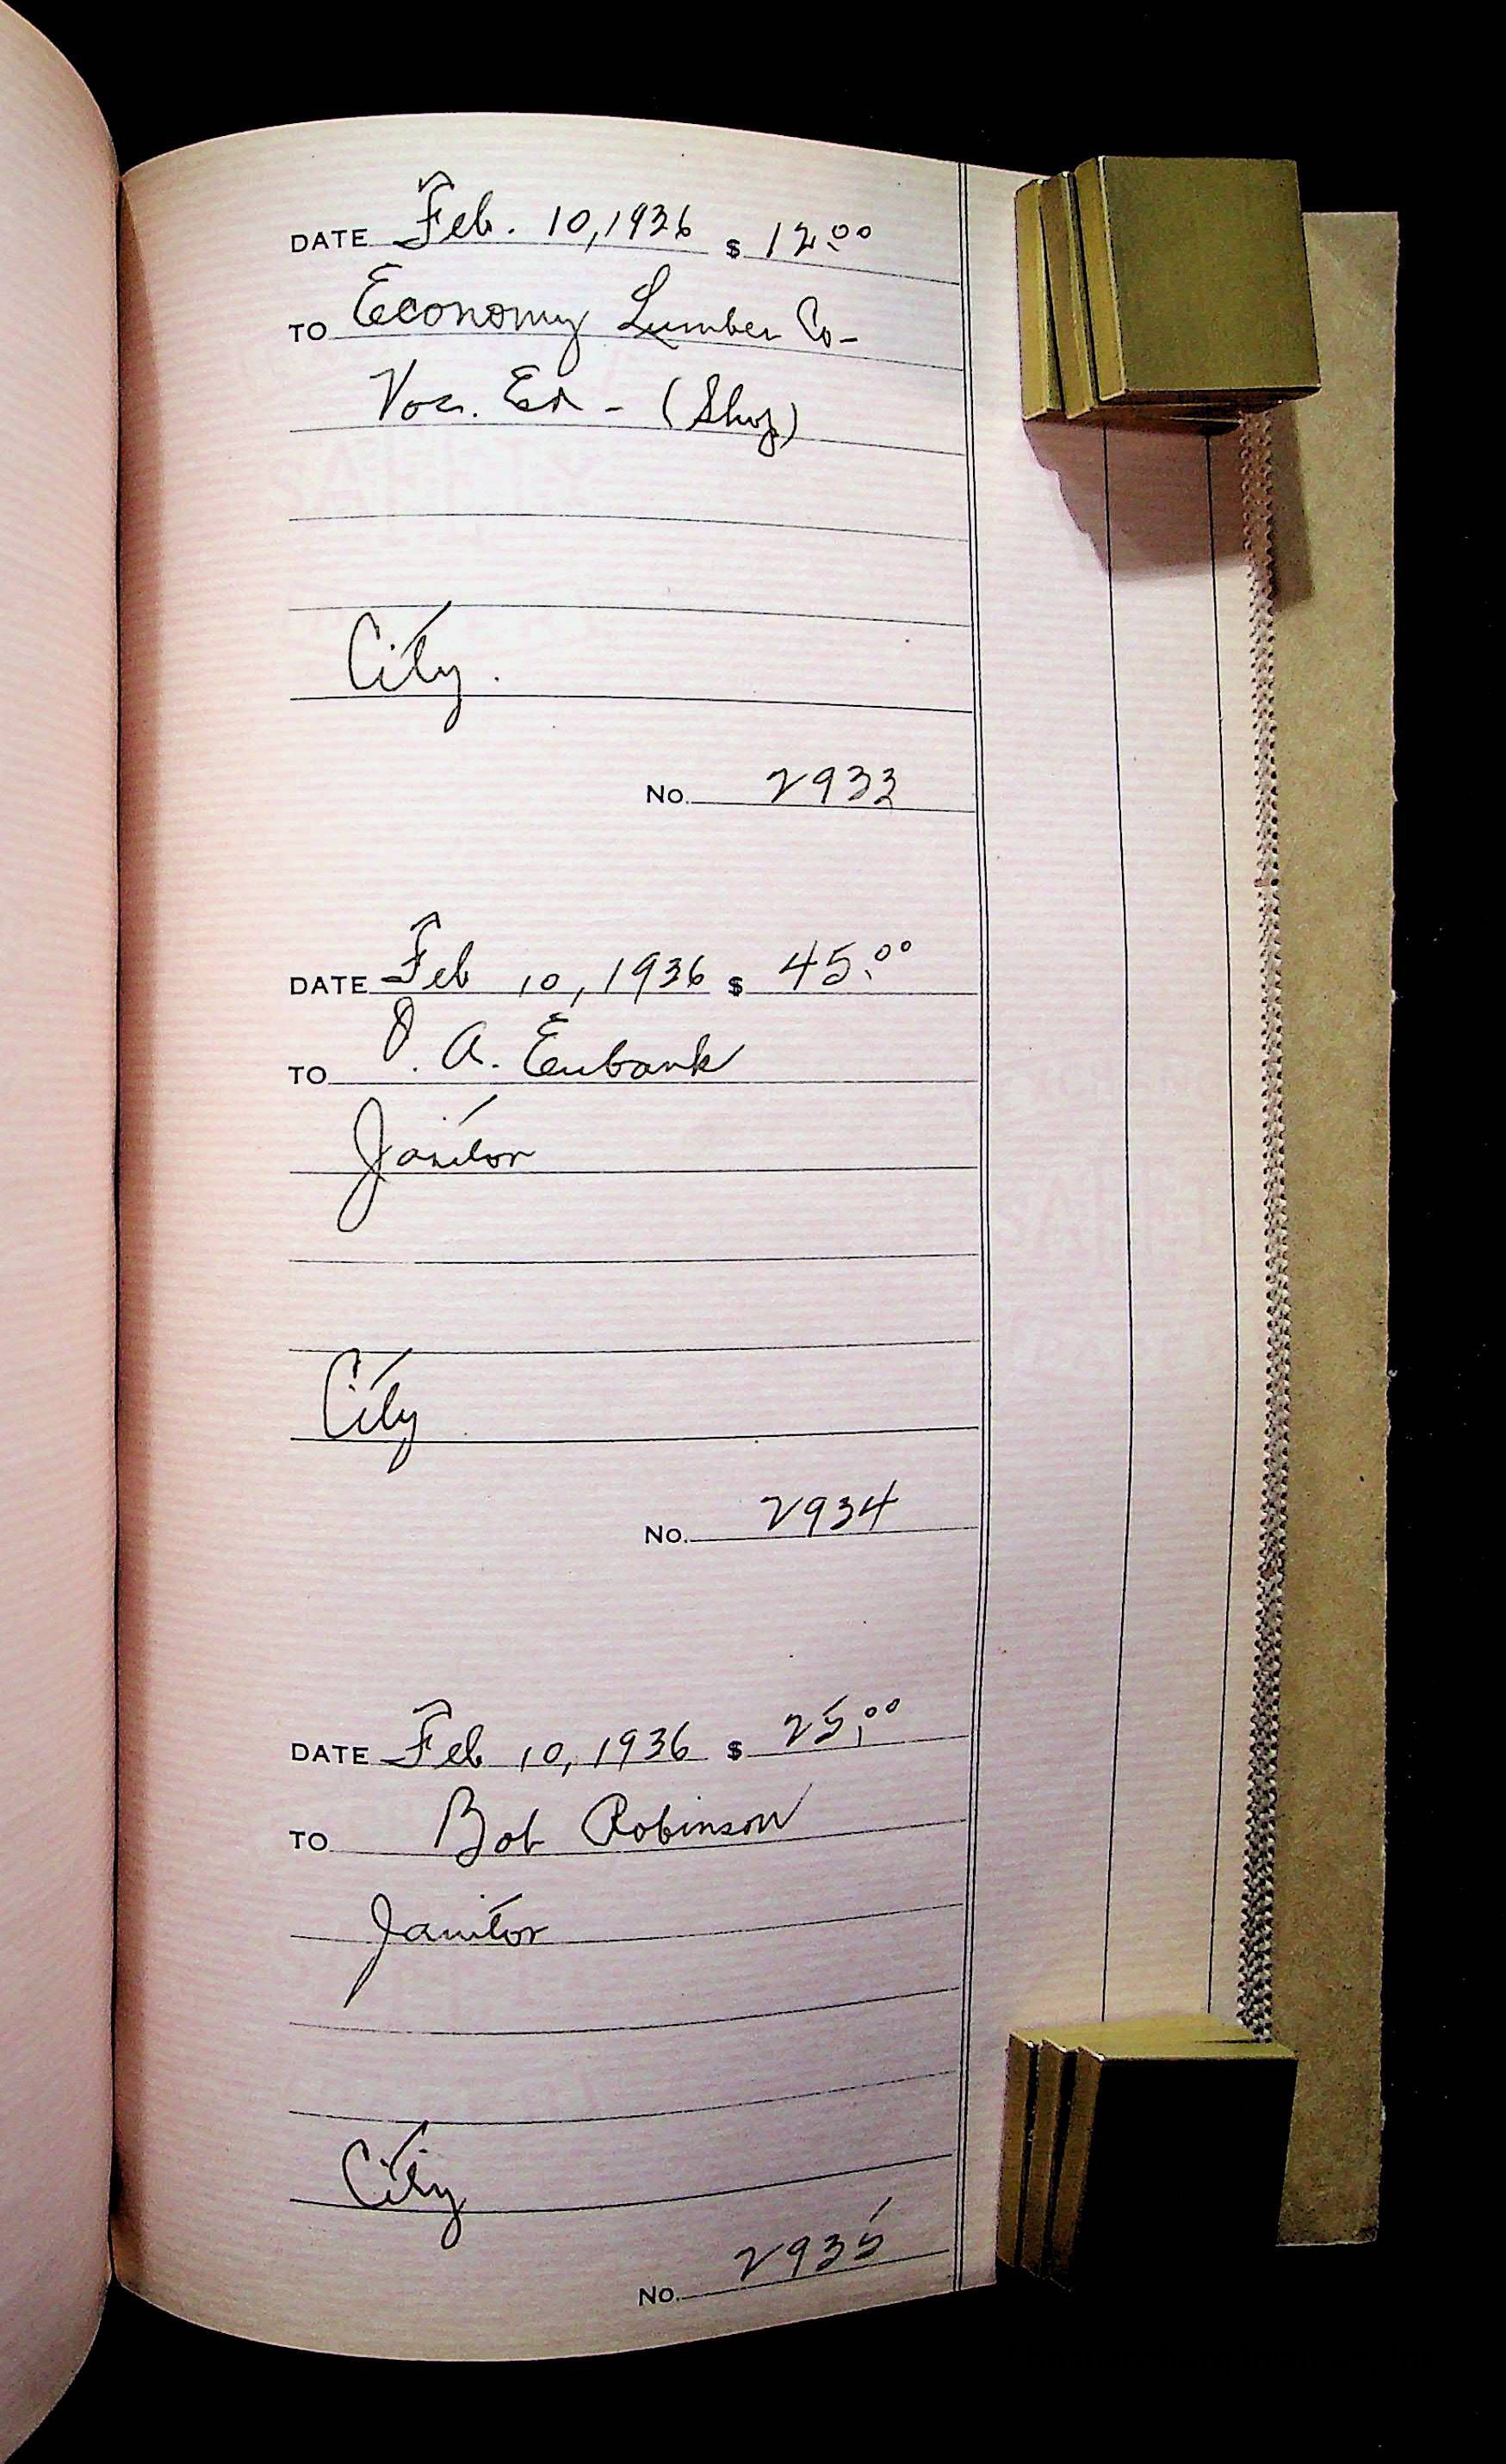 DATE Feb. 10, 1936 $ 12.00
TO Economy Lumber Co-
Voc. Ed - (Shop)
City.
No. 2933
DATE Feb 10, 1936 $ 45.00
TO A. Eubank
Janitor
City
No. 2934
DATE Feb 10, 1936 $ 25.00
TO Bob Robinson
Janitor
City
No. 2935